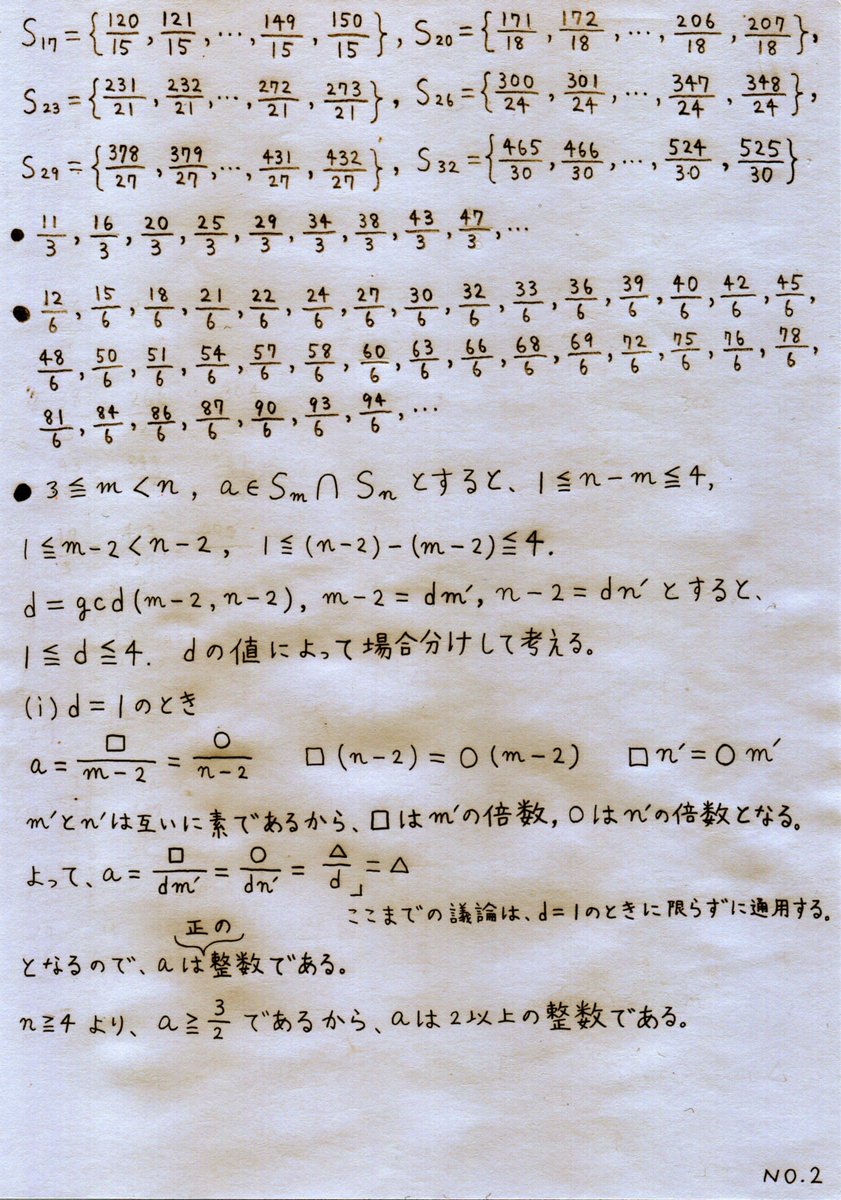 S₁₇={120/15, 121/15, ⋯, 149/15, 150/15}, S₂₀={171/18, 172/18, ⋯, 206/18, 207/18},
S₂₃={231/21, 232/21, ⋯, 272/21, 273/21}, S₂₆={300/24, 301/24, ⋯, 347/24, 348/24},
S₂₉={378/27, 379/27, ⋯, 431/27, 432/27}, S₃₂={465/30, 466/30, ⋯, 524/30, 525/30}
● 11/3, 16/3, 20/3, 25/3, 29/3, 34/3, 38/3, 43/3, 47/3, ⋯
● 12/6, 15/6, 18/6, 21/6, 22/6, 24/6, 27/6, 30/6, 32/6, 33/6, 36/6, 39/6, 40/6, 42/6, 45/6,
48/6, 50/6, 51/6, 54/6, 57/6, 58/6, 60/6, 63/6, 66/6, 68/6, 69/6, 72/6, 75/6, 76/6, 78/6,
81/6, 84/6, 86/6, 87/6, 90/6, 93/6, 94/6, ⋯
● 3≦m<n, a∈Sₘ∩Sₙ とすると、1≦n−m≦4,
1≦m−2<n−2, 1≦(n−2)−(m−2)≦4.
d=gcd(m−2, n−2), m−2=dm′, n−2=dn′とすると、
1≦d≦4. dの値によって場合分けして考える。
(i) d=1のとき
a=□/(m−2)=○/(n−2) □(n−2)=○(m−2) □n′=○m′
m′とn′は互いに素であるから、□はm′の倍数, ○はn′の倍数となる。
よって、a=□/dm′=○/dn′=△/d」=△
ここまでの議論は、d=1のときに限らずに通用する。
正の
となるので、aは整数である。
n≧4より、a≧3/2であるから、aは2以上の整数である。
NO.2